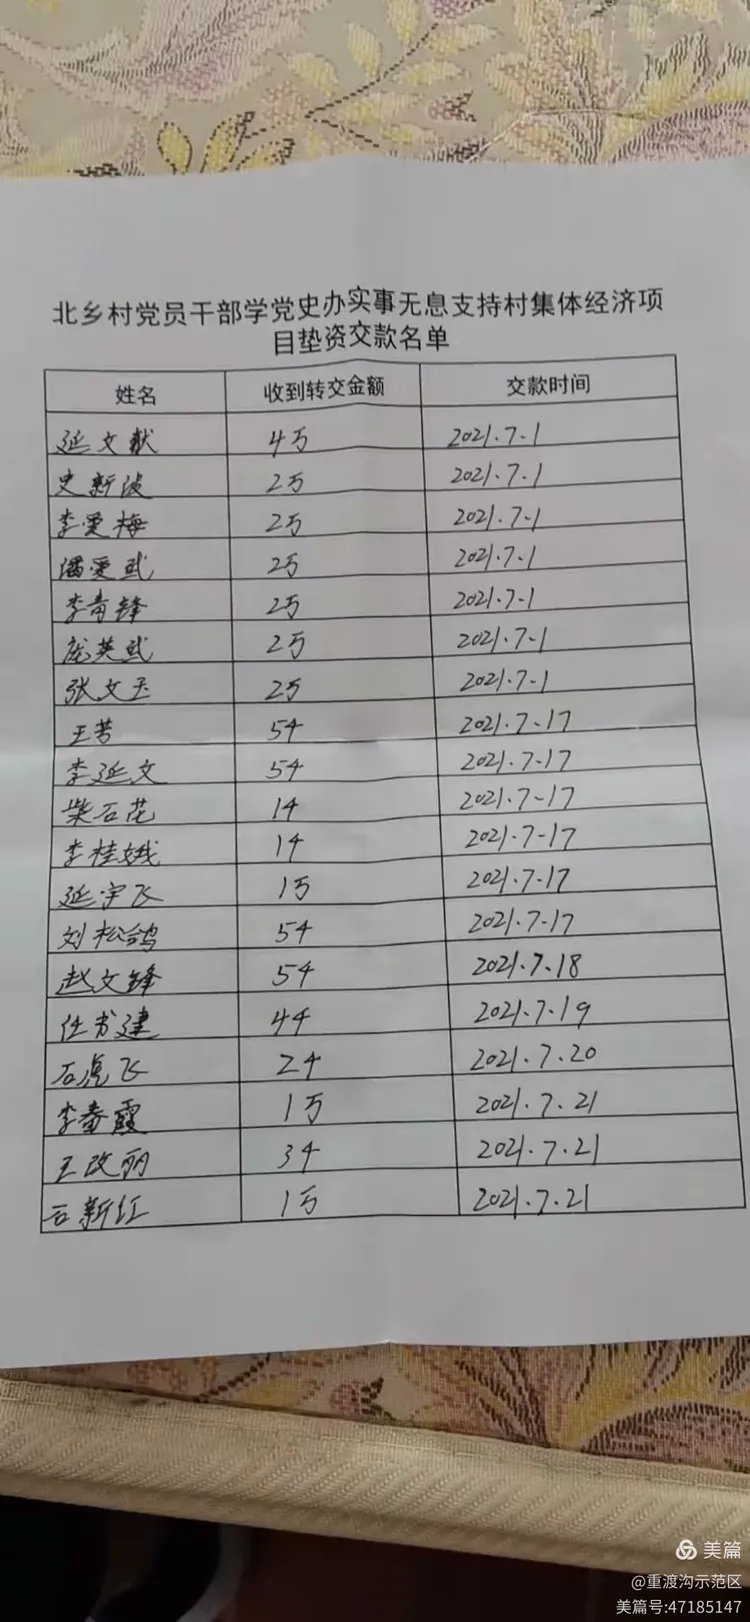 北乡村党员干部学党史办实事无息支持村集体经济项
目垫资交款名单
姓名 收到转交金额 交款时间
延文献 4万 2021.7.1
史新波 2万 2021.7.1
李爱梅 2万 2021.7.1
潘爱武 2万 2021.7.1
李青锋 2万 2021.7.1
庞英武 2万 2021.7.1
张文玉 2万 2021.7.1
王芳 5千 2021.7.17
李延文 5千 2021.7.17
柴石花 1千 2021.7.17
李桂娥 1千 2021.7.17
延宇飞 1万 2021.7.17
刘松鸽 5千 2021.7.17
赵文锋 5千 2021.7.18
任书建 4千 2021.7.19
石虎飞 2千 2021.7.20
李春霞 1万 2021.7.21
王改丽 3千 2021.7.21
石新红 1万 2021.7.21
美篇
@重渡沟示范区
美篇号:47185147